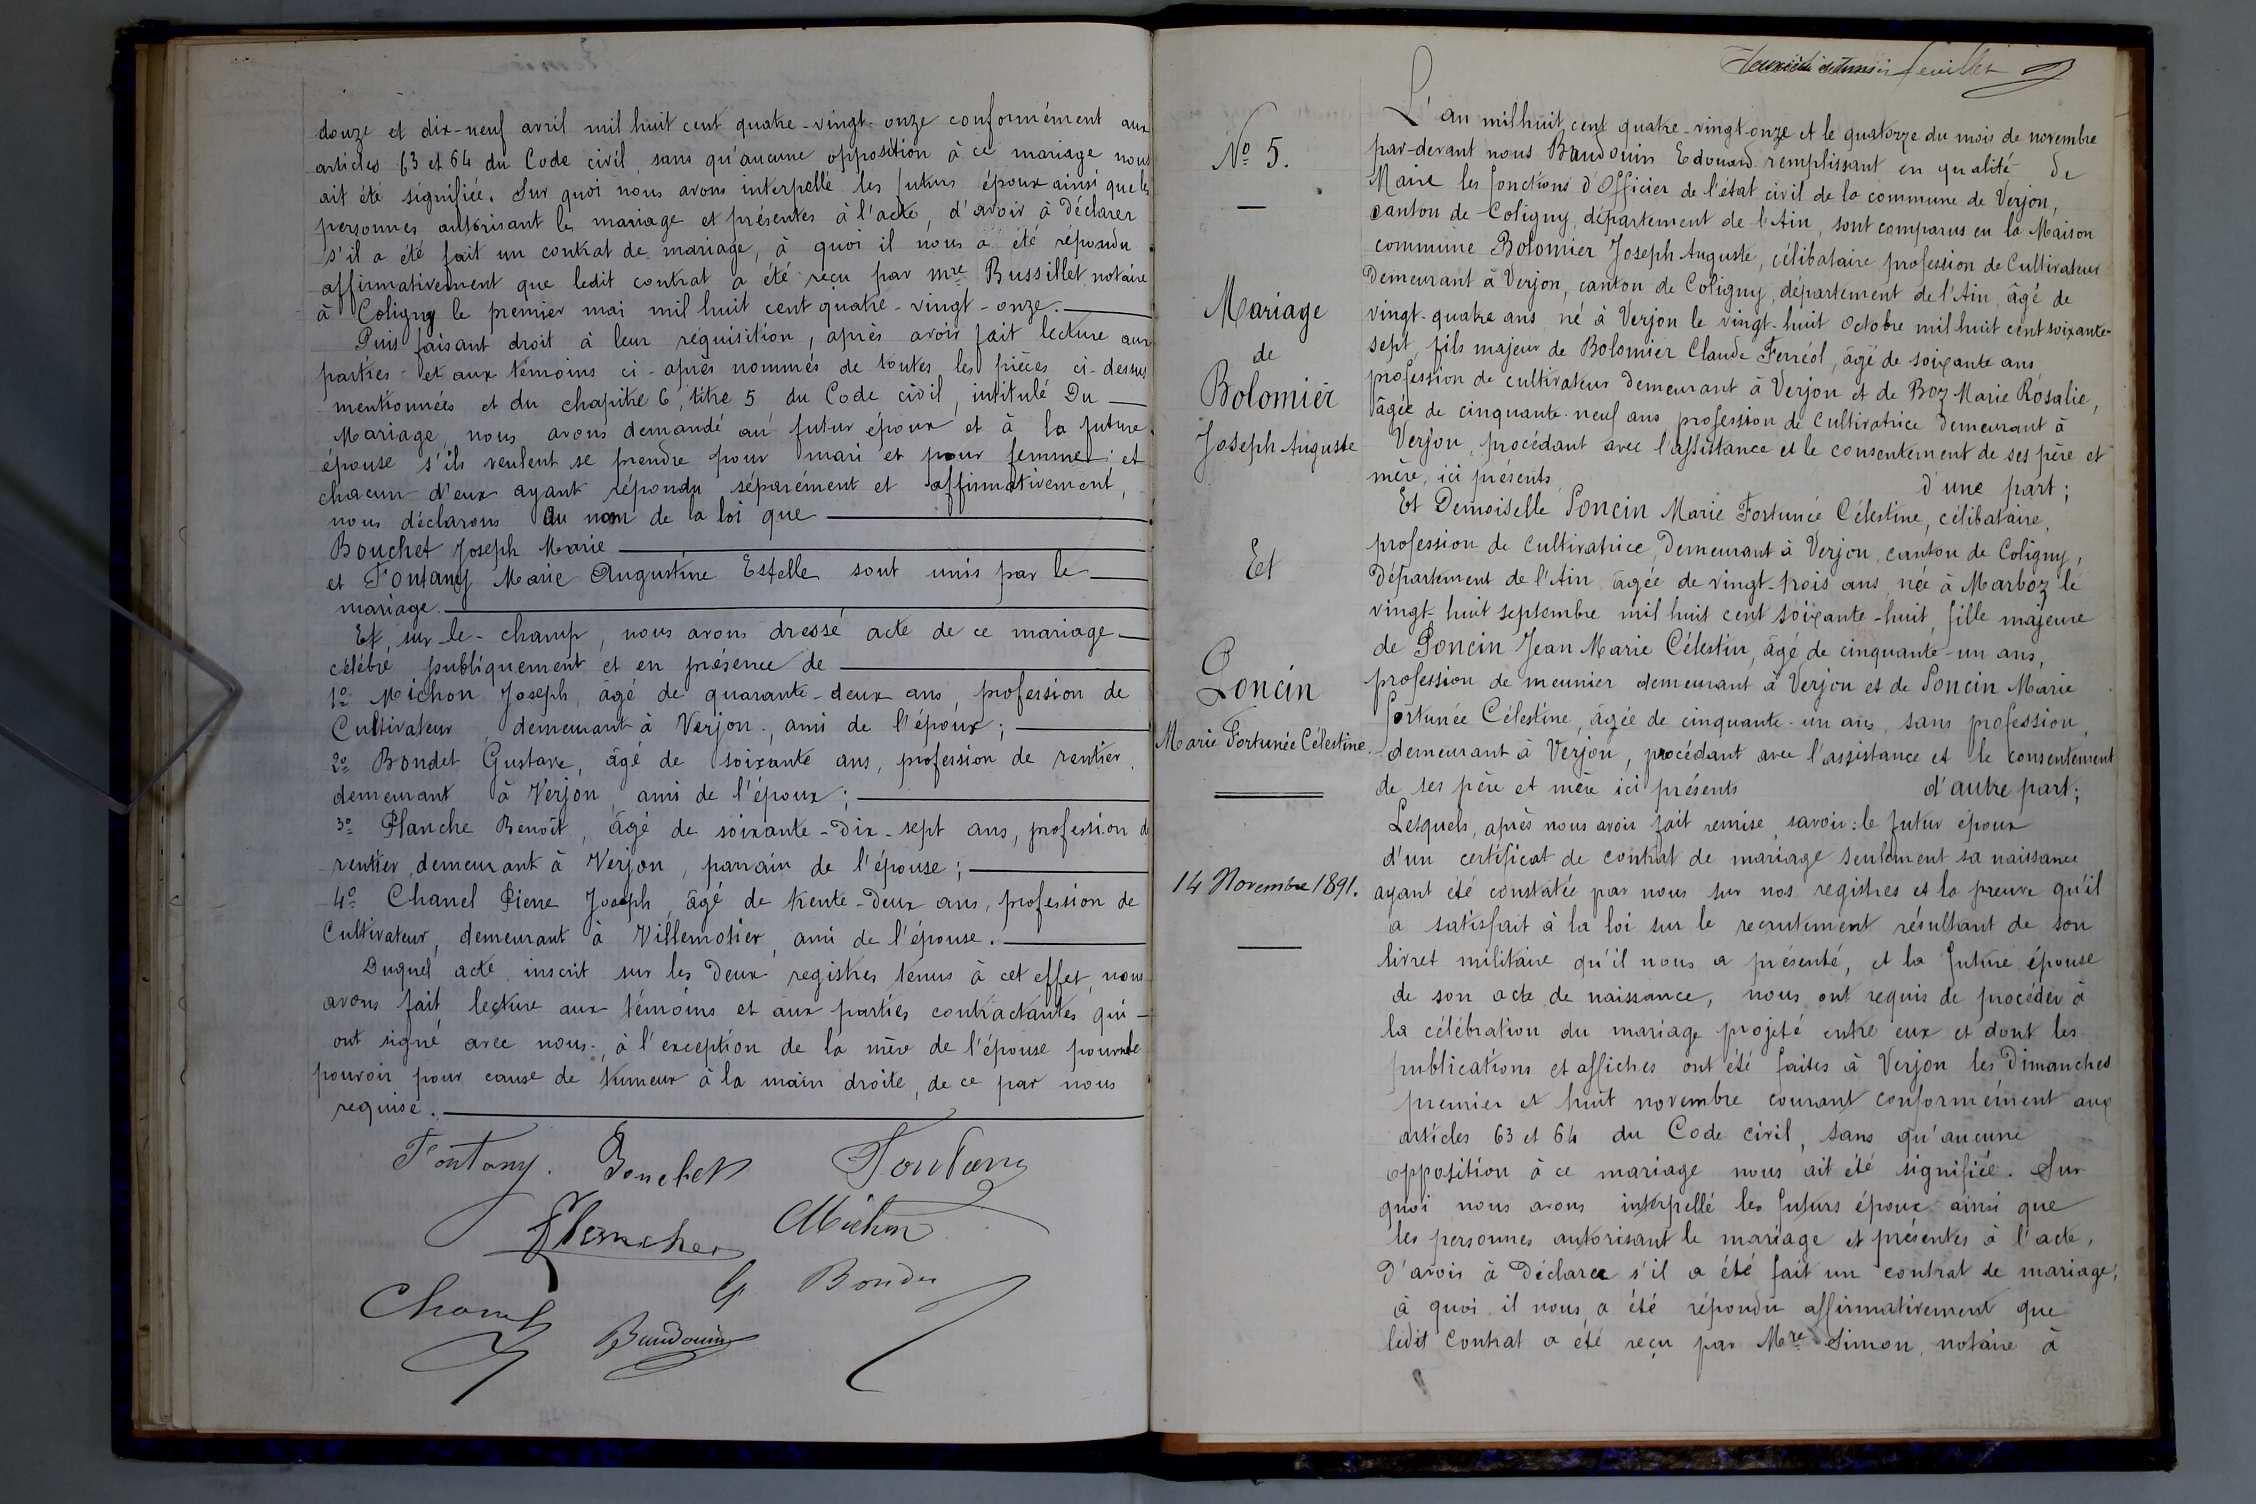 douze et dix-neuf avril mil huit cent quatre-vingt-onze conformément aux
articles 63 et 64 du Code civil, sans qu'aucune opposition à ce mariage nous
ait été signifiée. Sur quoi nous avons interpellé les futurs époux ainsi que les
personnes autorisant le mariage et présentes à l'acte, d'avoir à déclarer
s'il a été fait un contrat de mariage, à quoi il nous a été répondu
affirmativement que ledit contrat a été reçu par Mre Bussillet notaire
à Coligny le premier mai mil huit cent quatre-vingt-onze.
Puis faisant droit à leur réquisition, après avoir fait lecture aux
parties et aux témoins ci-après nommés de toutes les pièces ci-dessus
mentionnées et du chapitre 6, titre 5 du Code civil, intitulé Du
Mariage, nous avons demandé au futur époux et à la future
épouse s'ils veulent se prendre pour mari et pour femme; et
chacun d'eux ayant répondu séparément et affirmativement,
nous déclarons au nom de la loi que
Bouchet Joseph Marie
et Fontany Marie Augustine Estelle sont unis par le
mariage.
Et, sur-le-champ, nous avons dressé acte de ce mariage
célébré publiquement et en présence de
1o Michon Joseph, âgé de quarante-deux ans, profession de
Cultivateur, demeurant à Verjon, ami de l'époux;
2o Bondet Gustave, âgé de soixante ans, profession de rentier,
demeurant à Verjon, ami de l'époux;
3o Planche Benoît, âgé de soixante-dix-sept ans, profession de
rentier, demeurant à Verjon, parrain de l'épouse;
4o Chanel Pierre Joseph, âgé de trente-deux ans, profession de
Cultivateur, demeurant à Villemotier, ami de l'épouse.
Duquel acte inscrit sur les deux registres tenus à cet effet, nous
avons fait lecture aux témoins et aux parties contractantes qui
ont signé avec nous, à l'exception de la mère de l'épouse pour ne le
pouvoir pour cause de tumeur à la main droite, de ce par nous
requise.
Fontany. Bouchet Fontany
Planche Michon
Chanel G Bondet
Baudouin
feuillet
No 5.
Mariage
de
Bolomier
Joseph Auguste
Et
Poncin
Marie Fortunée Célestine.
14 Novembre 1891.
L'an mil huit cent quatre-vingt-onze et le quatorze du mois de novembre
par-devant nous Baudouin Edouard remplissant en qualité de
Maire les fonctions d'Officier de l'état civil de la commune de Verjon,
canton de Coligny, département de l'Ain, sont comparus en la Maison
commune Bolomier Joseph Auguste, célibataire, profession de Cultivateur
demeurant à Verjon, canton de Coligny, département de l'Ain, âgé de
vingt-quatre ans, né à Verjon le vingt-huit Octobre mil huit cent soixante-
sept, fils majeur de Bolomier Claude Ferréol, âgé de soixante ans,
profession de cultivateur demeurant à Verjon et de Boz Marie Rosalie,
âgée de cinquante-neuf ans, profession de Cultivatrice demeurant à
Verjon, procédant avec l'assistance et le consentement de ses père et
mère, ici présents d'une part;
Et Demoiselle Poncin Marie Fortunée Célestine, célibataire,
profession de Cultivatrice, demeurant à Verjon, canton de Coligny,
Département de l'Ain, âgée de vingt-trois ans, née à Marboz le
vingt-huit septembre mil huit cent soixante-huit, fille majeure
de Poncin Jean Marie Célestin, âgé de cinquante-un ans,
profession de meunier demeurant à Verjon et de Poncin Marie
Fortunée Célestine, âgée de cinquante-un ans, sans profession,
demeurant à Verjon, procédant avec l'assistance et le consentement
de ses père et mère ici présents d'autre part;
Lesquels, après nous avoir fait remise, savoir: le futur époux
d'un certificat de contrat de mariage seulement sa naissance
ayant été constatée par nous sur nos registres et la preuve qu'il
a satisfait à la loi sur le recrutement résultant de son
livret militaire qu'il nous a présenté, et la future épouse
de son acte de naissance, nous ont requis de procéder à
la célébration du mariage projeté entre eux et dont les
publications et affiches ont été faites à Verjon les Dimanches
premier et huit novembre courant conformément aux
articles 63 et 64 du Code civil, sans qu'aucune
opposition à ce mariage nous ait été signifiée. Sur
quoi nous avons interpellé les futurs époux ainsi que
les personnes autorisant le mariage et présentes à l'acte,
d'avoir à déclarer s'il a été fait un contrat de mariage,
à quoi il nous a été répondu affirmativement que
ledit contrat a été reçu par Mre Simon, notaire à